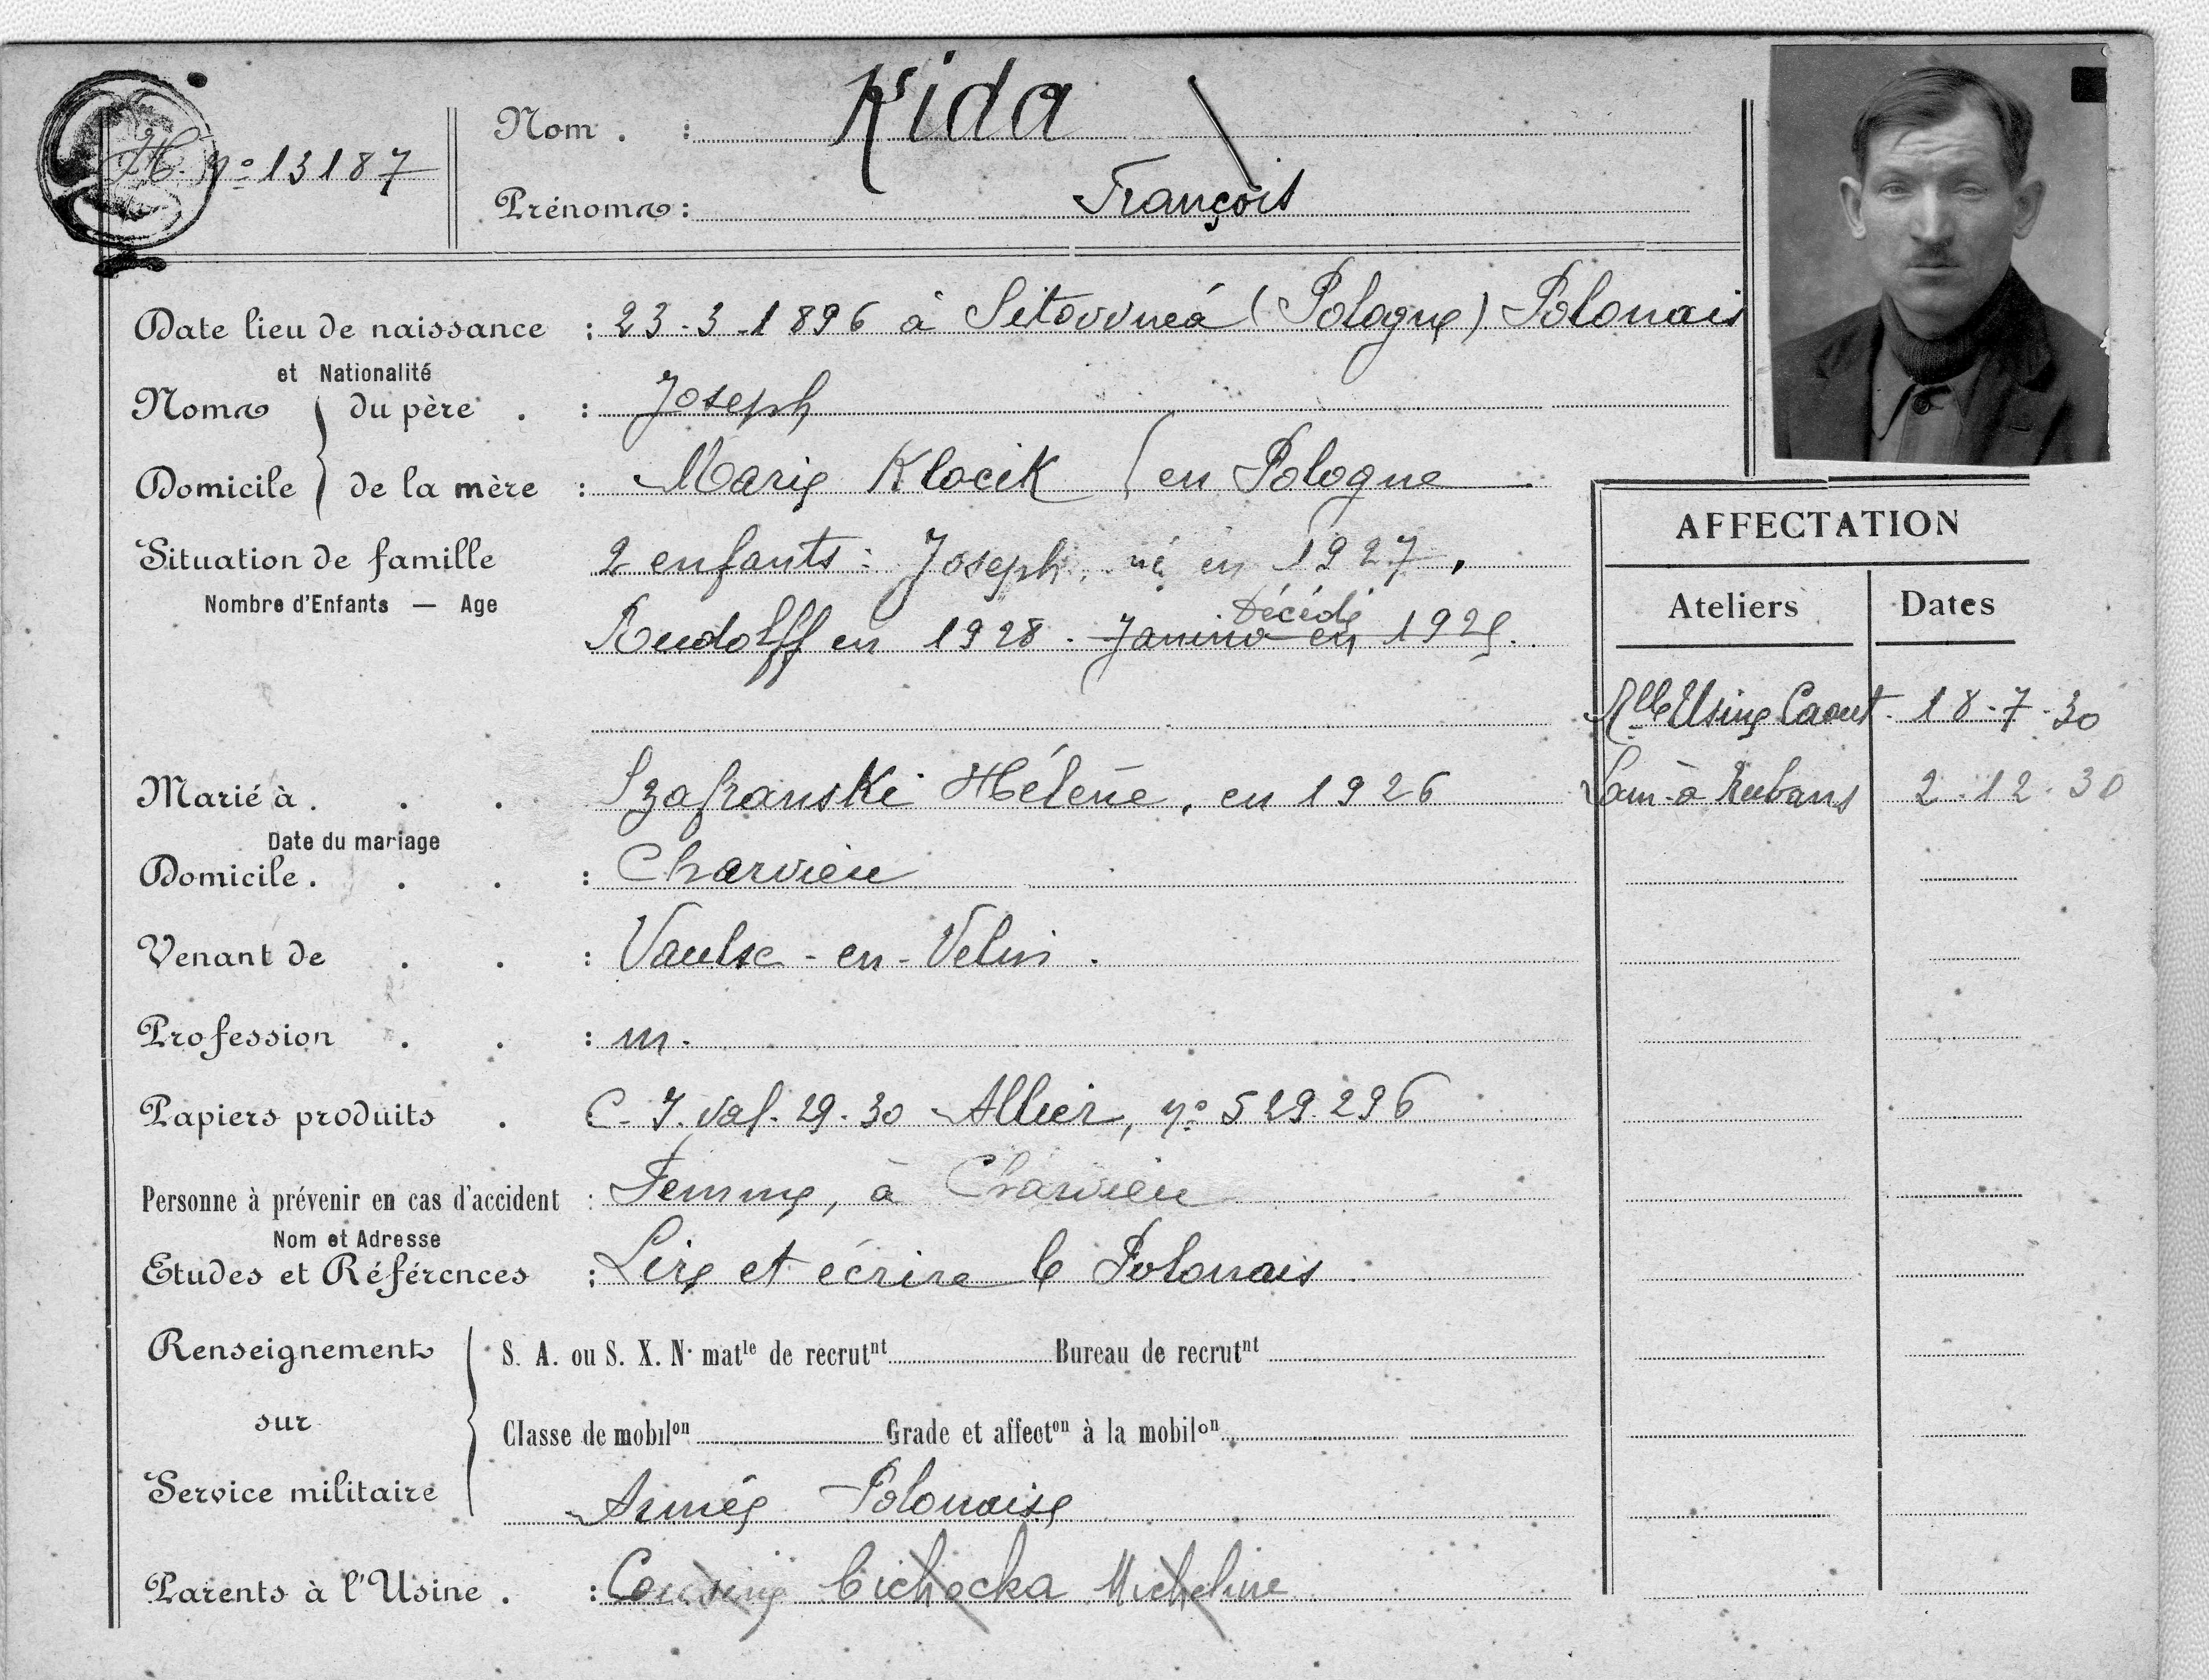 Nom . : Kida
H. nº 13187
Prénoms : François
Date lieu de naissance : 23-3-1896 à Sitovvneá (Pologne) Polonais
et Nationalité
Noms du père . : Joseph
Domicile de la mère : Marie Klocik (en Pologne
Situation de famille 2 enfants : Joseph, né en 1927,
Nombre d'Enfants — Age
Décédé
Rudolff en 1928. Janina en 1929.
Marié à . . . Szafranski Hélène, en 1926
Date du mariage
Domicile . . . : Charvieu
Venant de . . : Vaulse-en-Velin.
Profession . . : m.
Papiers produits . C. I. val. 29-30 Allier, nº 529.296
Personne à prévenir en cas d'accident : Femme, à Charvieu
Nom et Adresse
Etudes et Références : Lire et écrire le Polonais
Renseignements
sur
Service militaire
S. A. ou S. X. Nº matle de recrutnt Bureau de recrutnt
Classe de mobilon Grade et affecton à la mobilon
Armée Polonaise
Parents à l'Usine . : Cousine Cichocka Micheline
AFFECTATION
Ateliers Dates
Nlle Usine Caout. 18-7-30
Lam-à Rubans 2-12-30